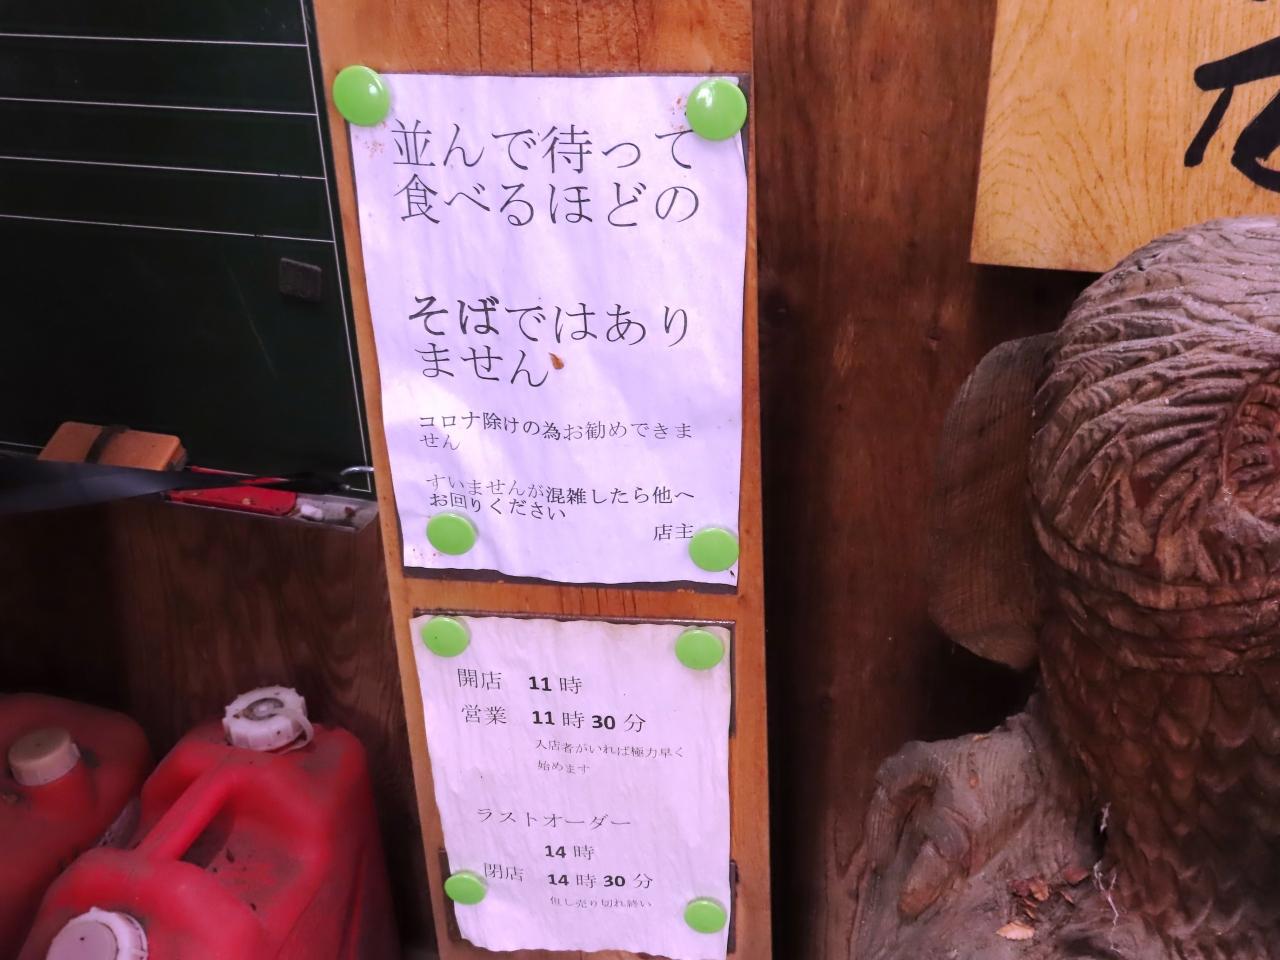 並んで待って
食べるほどの
そばではあり
ません
コロナ除けの為お勧めできま
せん
すいませんが混雑したら他へ
お回りください
店主
開店 11時
営業 11時30分
入店者がいれば極力早く
始めます
ラストオーダー
14時
閉店 14時30分
但し売り切れ終い